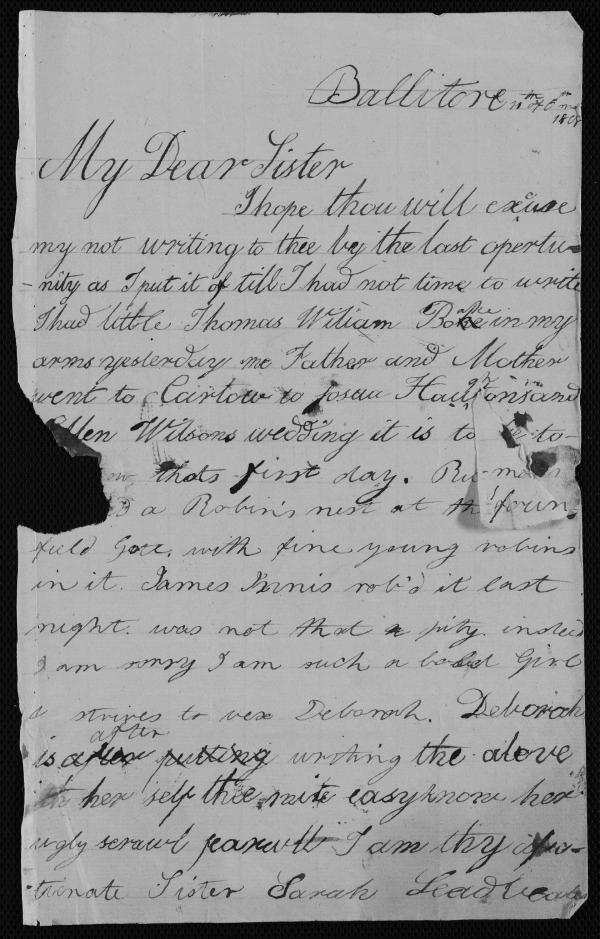 Ballitore 11th of 6th mo
1808
My Dear Sister
I hope thou will excuse
my not writing to thee by the last opertu-
-nity as I put it of till I had not time to write
I had little Thomas Wiliam Boake in my
arms yesterday me Father and Mother
went to Carlow to Hudsons and
Ellen Wilsons wedding it is to be to-
thats first day.
a Robin's nest at the
field Gate, with fine young robins
in it. James rob'd it last
night. was not that a pity. indeed
I am sorry I am such a bad Girl
strives to vex Deborah. Deborah
is after putting writing the above
in her self thee mite easy know her
ugly scrawl farwell I am thy afec-
tionate Sister Sarah Leadbeater